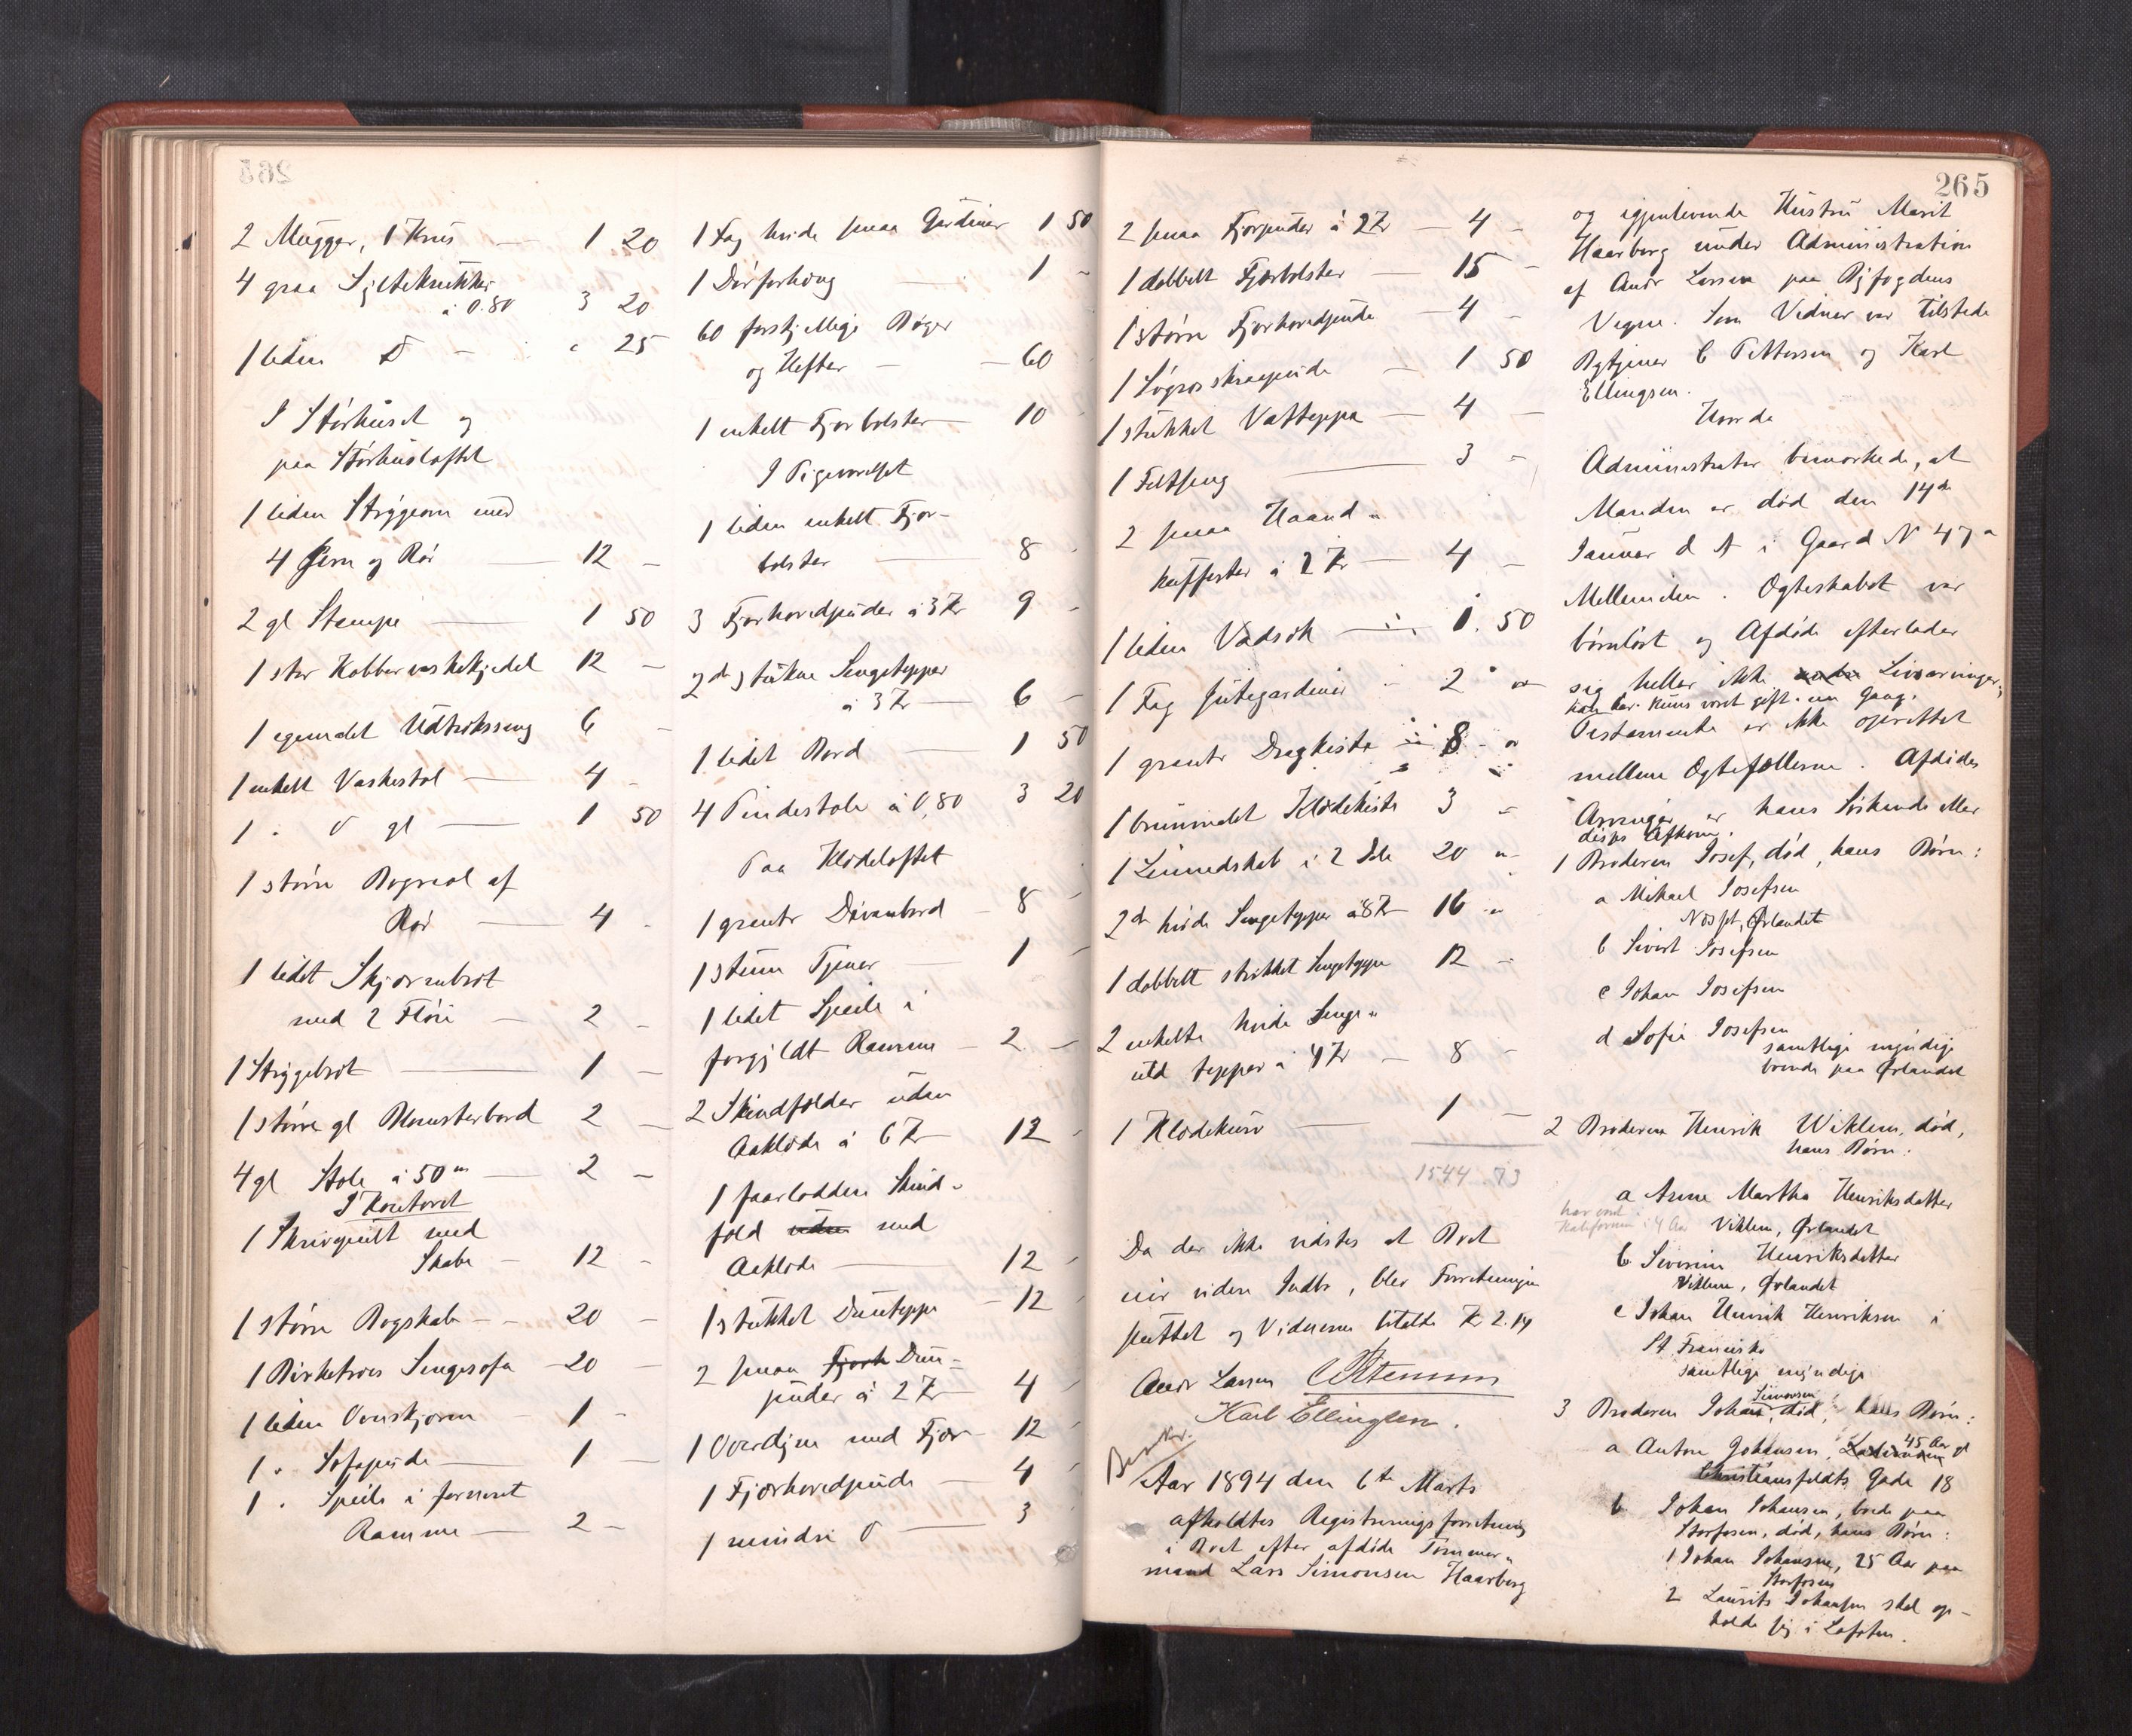 2 Mugger, 1 Krus — 1 20
4 graa Syltekrukker
à 0.80 3 20
1 liden D — 25
I Størhuset og
paa Størhusloftet
1 liden Strygeovn med
4 Jern og Rør — 12 –
2 gl Stampe — 1 50
1 stor Kobbervaskekjedel 12 –
1 egemalet Udtræksseng 6 –
1 enkelt Vaskestol — 4 –
1 " D gl — 1 50
1 større Bogreol af
Rør — 4 –
1 lidet Skjærebræt
med 2 — 2 –
1 Strygebræt — 1 –
1 større gl Blomsterbord 2 –
4 gl Stole à 50 — 2 –
I Kontoret
1 Skrivepult med
Skabe — 12 –
1 større Bogskab — 20 –
1 Birketræes Sengesofa — 20 –
1 liden Ovnskjærm — 1 –
1 " Sofapude — 1 –
1 " Speile i forneret
Ramme — 2 –
1 Fag hvide smaa Gardiner 1 50
1 Dørforhæng 1 –
60 forskjellige Bøger
og Hefter — 60
1 enkelt Fjærbolster — 10 –
I Pigeværelset
1 liden enkelt Fjær-
bolster — 8 –
3 Fjærhovedpuder à 3 Kr 9 –
2 d stukne Sengetepper
à 3 Kr — 6 –
1 lidet Bord — 1 50
4 Pindestole à 0,80 3 20
Paa Klædeloftet
1 grantr Divanbord — 8 –
1 stum Tjener — 1 –
1 lidet Speile i
forgyldt Ramme — 2 –
2 Skindfelder uden
Aaklæde à 6 Kr — 12 –
1 faarlodden Skind-
feld uden med
Aaklæde — 12 –
1 stukket Dunteppe — 12 –
2 smaa Fjærh Dun-
puder à 2 Kr — 4 –
1 Overdyne med Fjær — 12 –
1 Fjærhovedpude — 4 –
1 mindre D — 3
265
2 smaa Fjærpuder à 2 Kr — 4 –
1 dobbelt Fjærbolster — 15 –
1 større Fjærhovedpude — 4 –
1 Søgræsskraapude — 1 50
1 stukket Vatteppe — 4 –
1 Feltseng — 3 –
2 smaa Haand-
kufferter à 2 Kr — 4 –
1 liden Vadsæk — 1. 50
1 Fag Jutegardiner – 2 –
1 grantr Dragkiste 8 –
1 brunmalet Klædekiste 3 –
1 Linnedskab i 2 Dele 20 –
2 d hvide Sengetepper à 8 Kr 16 –
1 dobbelt strikket Sengeteppe 12 –
2 enkelte hvide Senge-
uld tepper à 4 Kr — 8 –
1 Klædekurv — 1 –
1544.73
Da der ikke vidstes at Boet
eier videre Indbo, blev Forretningen
sluttet og Vidnerne betalte Kr 2.14
Andr Larsen C Pettersen
Karl Ellingsen.
Aar 1894 den 6te Marts
afholdtes Registreringsforretning
i Boet efter afdøde Tømmer-
mand Lars Simonsen Haarberg
og igjenlevende Hustru Marit
Haarberg under Administration
af Andr Larsen paa Byfogdens
Vegne. Som Vidner var tilstede
Bytjener C Pettersen og Karl
Ellingsen.
Hvorda
Administrator bemærkede, at
Manden er død den 14de
Januar d A i Gaard No 47a
Mellemilen. Ægteskabet var
børnløst og Afdøde efterlader
sig heller ikke andre Livsarvinger;
han har kuns været gift en Gang.
Testamente er ikke oprettet
mellem Ægtefællerne. Afdødes
Arvinger er hans Søskende eller
disses Afkom.
1 Broderen Josef, død, hans Børn:
a Mikael Josefsen
Næsset, Ørlandet
b Sivert Josefsen
c Johan Josefsen
d Sofie Josefsen
samtlige myndige
boende paa Ørlandet
2 Broderen Henrik Wiklem, død,
hans Børn:
a Anne Martha Henriksdatter
har været i Kalifornien i 4 Aar Viklem, Ørlandet
b Severine Henriksdatter
Viklem, Ørlandet
c Johan Henrik Henriksen i
St Francisko
samtlige myndige
3 Broderen Johan Simonsen, død, hans Børn:
a Anton Johansen, 45 Aar gl
Christiansfeldts Gade 18
b Johan Johansen, boede paa
Storfosen, død, hans Børn:
1 Johan Johansen, 25 Aar paa
Storfosen
2 Laurits Johansen skal op-
holde sig i Lofoten.